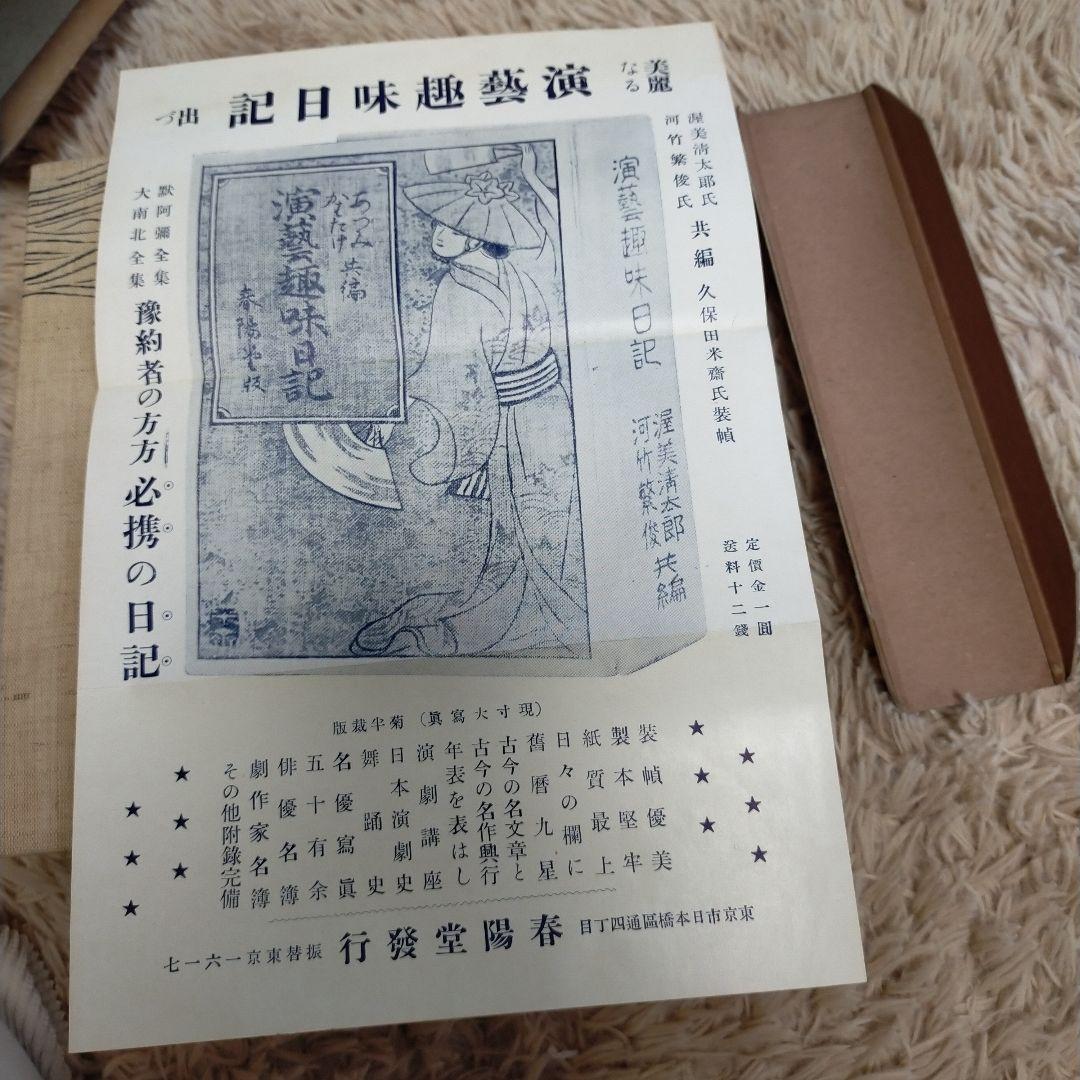 美麗なる
演藝趣味日記
出づ
渥美清太郎氏
河竹繁俊氏
共編
久保田米齋氏裝幀
定價金一圓
送料十二錢
演藝趣味日記
渥美清太郎
河竹繁俊
共編
あつみ
かわたけ
共編
演藝趣味日記
春陽堂版
默阿彌全集
大南北全集
豫約者の方方必携の日記
(現寸大寫眞)菊半裁版
裝幀優美
製本堅牢
紙質最上
日々の欄に
舊曆九星
古今の名文章と
古今の名作興行
年表を表はし
演劇講座
日本演劇史
舞踊史
名優寫眞
五十有余
俳優名簿
劇作家名簿
その他附錄完備
東京市日本橋區通四丁目
春陽堂發行
振替東京一六一七